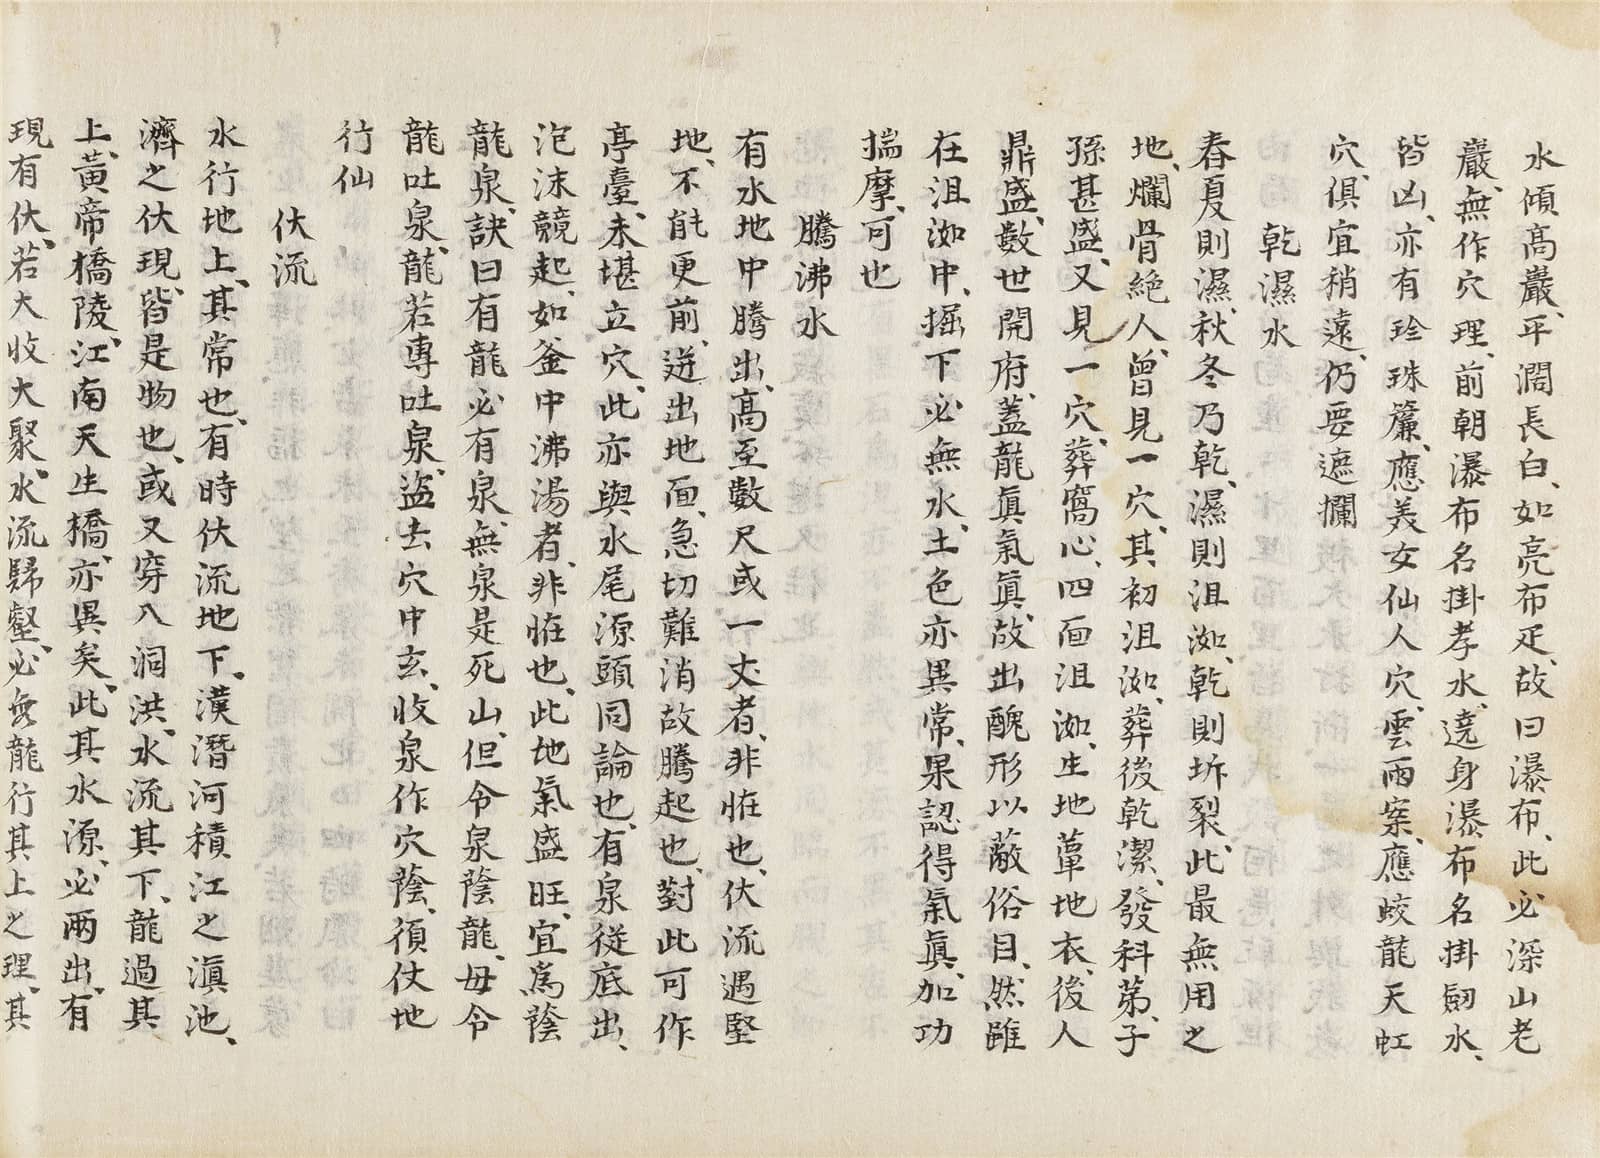 水傾高巖、平濶長白、如亮布疋、故曰瀑布、此必深山老
巖、無作穴理、前朝瀑布名掛孝水、遶身瀑布名掛劒水、
皆凶、亦有珍珠簾、應美女仙人穴、雲雨案、應蛟龍天虹
穴、俱宜稍遠、仍要遮攔
乾濕水
春夏則濕、秋冬乃乾、濕則沮洳、乾則坼裂、此最無用之
地、爛骨絕人、曾見一穴、其初沮洳、葬後乾潔、發科第、子
孫甚盛、又見一穴、葬窩心、四面沮洳、生地蕈地衣、後人
鼎盛、數世開府、蓋龍眞氣眞、故出醜形以蔽俗目、然雖
在沮洳中、掘下必無水、土色亦異常、果認得氣眞、加功
揣摩、可也
騰沸水
有水地中騰出、高至數尺或一丈者、非恠也、伏流遇堅
地、不能更前、迸出地面、急切難消故騰起也、對此可作
亭臺、未堪立穴、此亦與水尾源頭同論也、有泉從底出、
泡沫競起、如釜中沸湯者、非恠也、此地氣盛旺、宜爲蔭
龍泉、訣曰有龍必有泉、無泉是死山、但令泉蔭龍、毋令
龍吐泉、龍若專吐泉、盜去穴中玄、收泉作穴蔭、須仗地
行仙
伏流
水行地上、其常也、有時伏流地下、漢潛河積江之滇池、
濟之伏現、皆是物也、或又穿入洞洪、水流其下、龍過其
上、黃帝橋陵、江南天生橋、亦異矣、此其水源、必兩出、有
現有伏、若大收大聚、水流歸壑、必無龍行其上之理、其